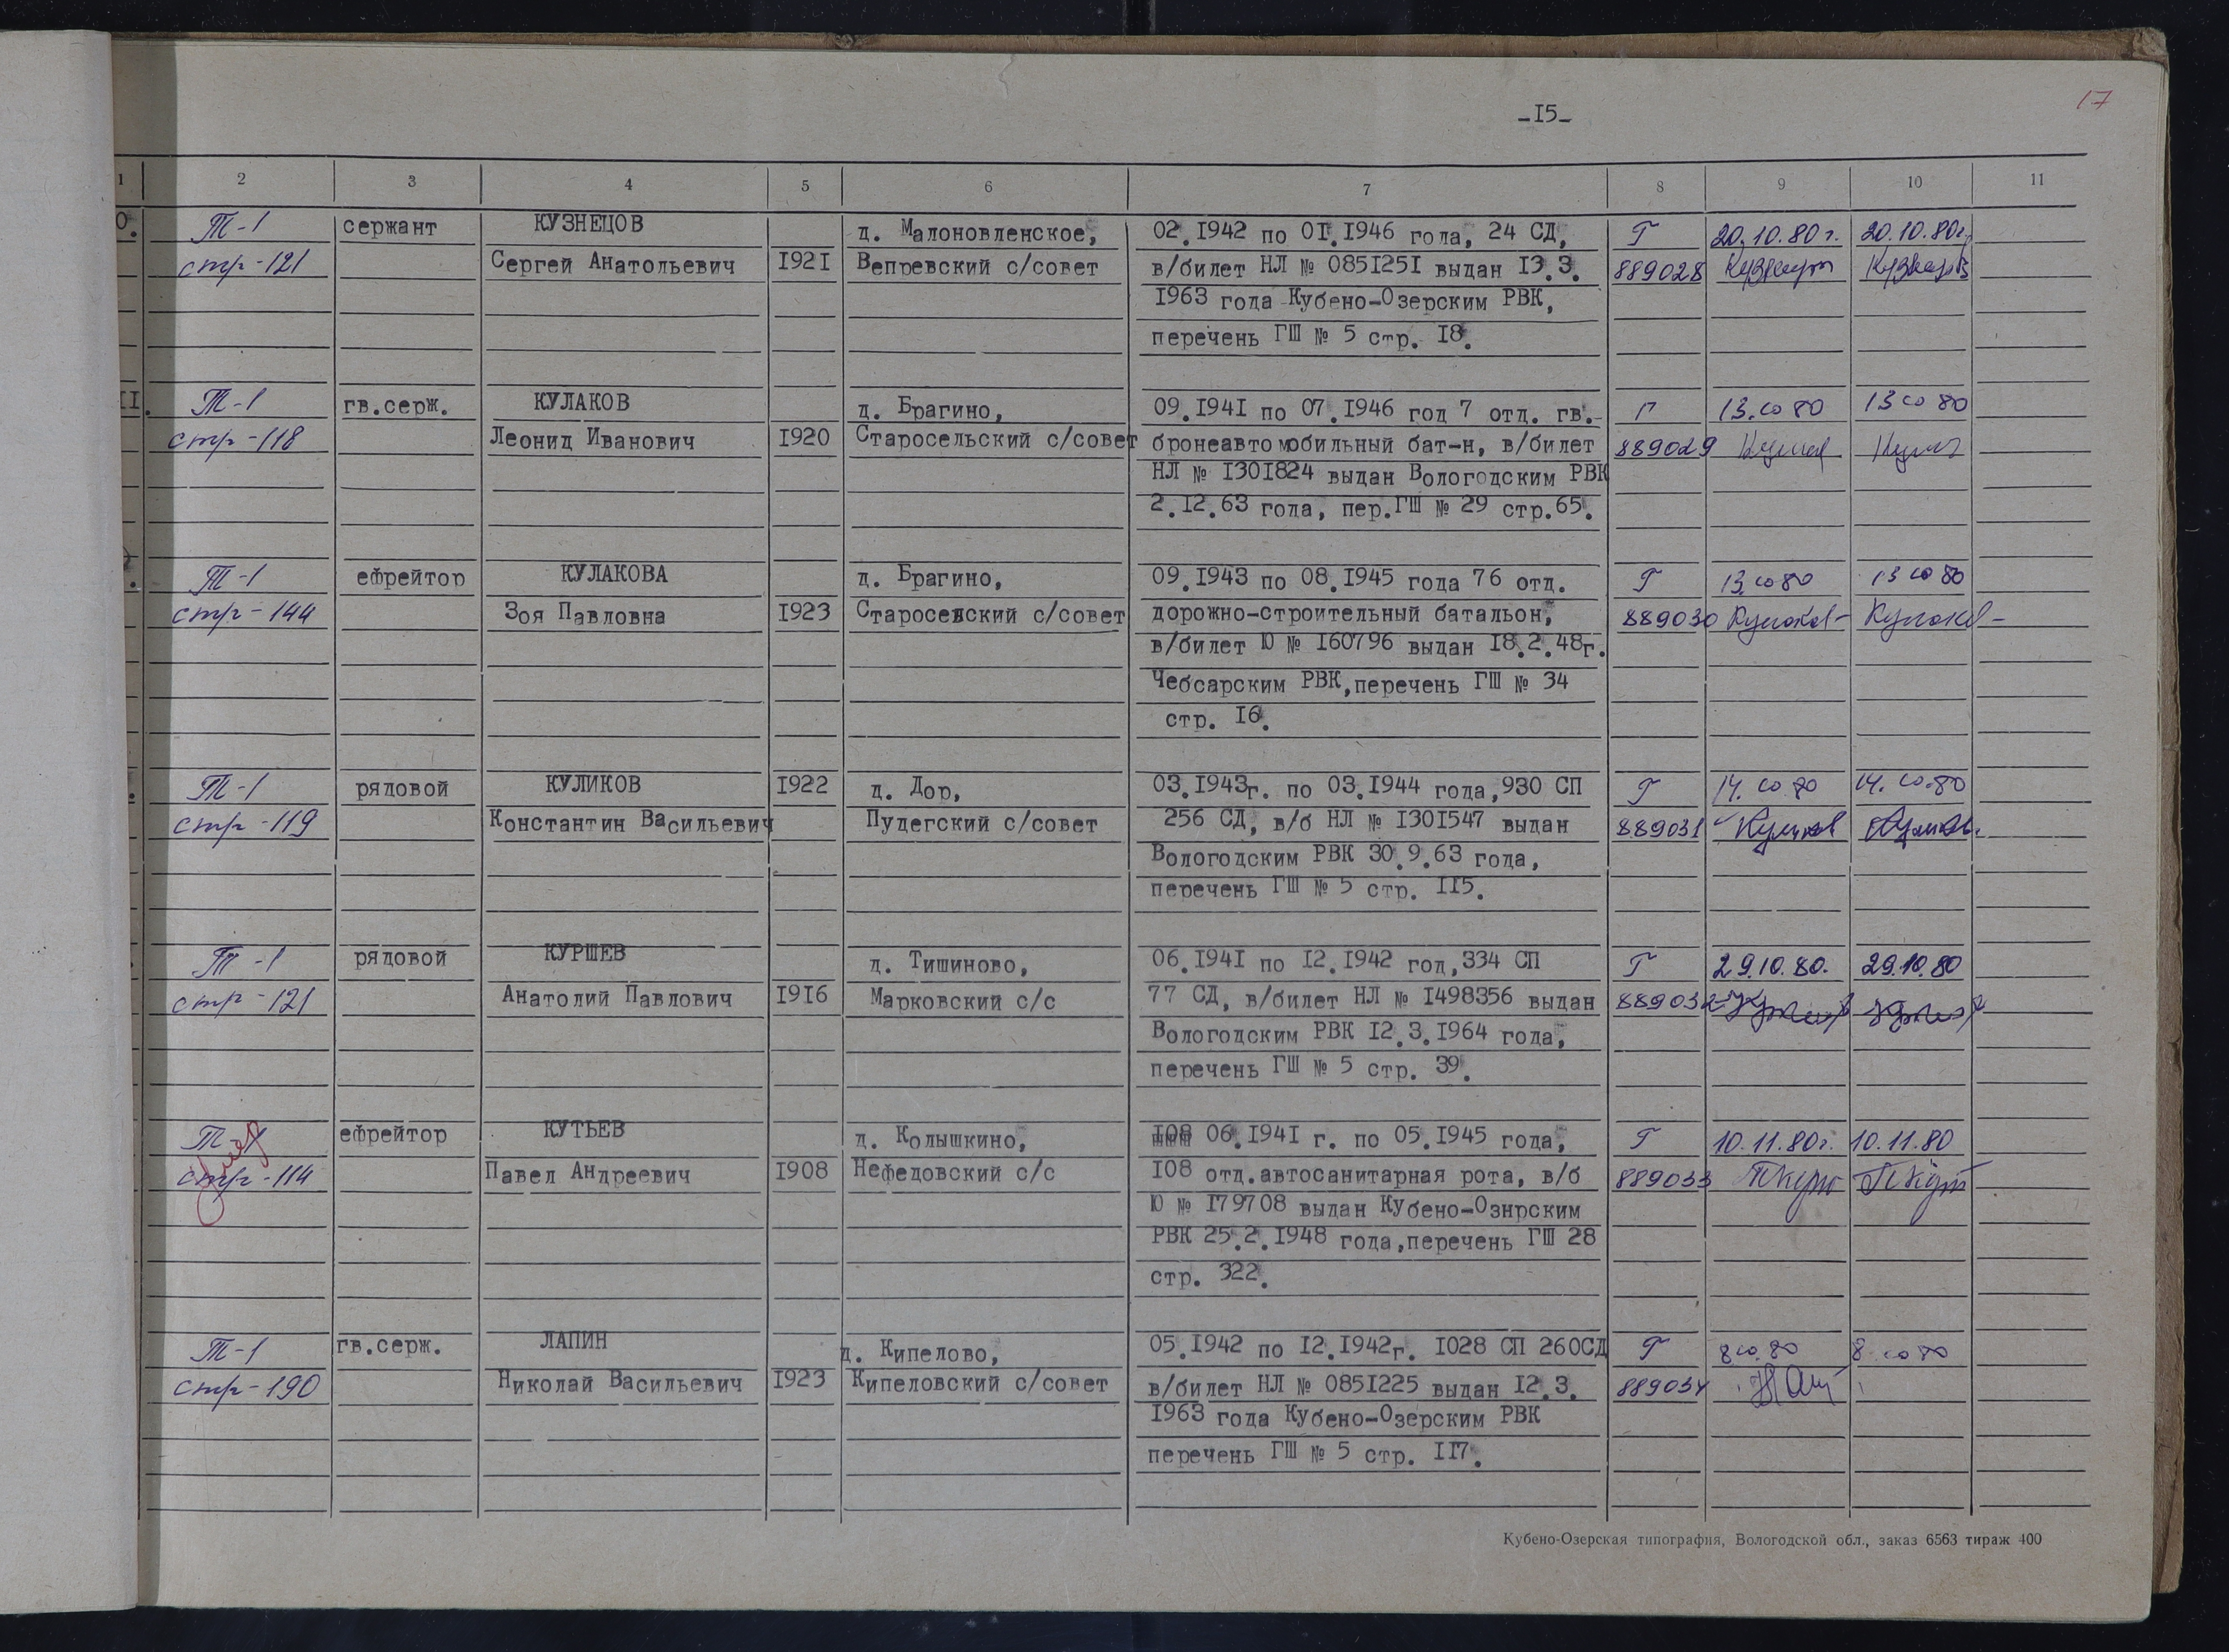 -15-
17
1 2 3 4 5 6 7 8 9 10 11
0. Т-1 сержант КУЗНЕЦОВ д. Малоновленское, 02.1942 по 01.1946 года, 24 СД, Г 20.10.80г. 20.10.80г.
стр-121 Сергей Анатольевич 1921 Вепревский с/совет в/билет НЛ № 0851251 выдан 13.3. 889028
1963 года Кубено-Озерским РВК,
перечень ГШ № 5 стр. 18.
11. Т-1 гв.серж. КУЛАКОВ д. Брагино, 09.1941 по 07.1946 год 7 отд. гв.- Г 13.10 80 13 10 80
стр-118 Леонид Иванович 1920 Старосельский с/совет бронеавтомобильный бат-н, в/билет 889029
НЛ № 1301824 выдан Вологодским РВК
2.12.63 года, пер.ГШ № 29 стр.65.
Т-1 ефрейтор КУЛАКОВА д. Брагино, 09.1943 по 08.1945 года 76 отд. Г 13.10 80 13 10 80
стр-144 Зоя Павловна 1923 Старосевский с/совет дорожно-строительный батальон, 889030
в/билет Ю № 160796 выдан 18.2.48г.
Чебсарским РВК,перечень ГШ № 34
стр. 16.
Т-1 рядовой КУЛИКОВ 1922 д. Дор, 03.1943г. по 03.1944 года,930 СП Г 14.10 80 14.10.80
стр-119 Константин Васильевич Пудегский с/совет 256 СД, в/б НЛ № 1301547 выдан 889031
Вологодским РВК 30.9.63 года,
перечень ГШ № 5 стр. 115.
Т-1 рядовой КУРШЕВ д. Тишиново, 06.1941 по 12.1942 год,334 СП Г 29.10.80. 29.10.80
стр-121 Анатолий Павлович 1916 Марковский с/с 77 СД, в/билет НЛ № 1498356 выдан 889032
Вологодским РВК 12.3.1964 года,
перечень ГШ № 5 стр. 39.
Т-1 ефрейтор КУТЬЕВ д. Колышкино, 108 06.1941 г. по 05.1945 года, Г 10.11.80г. 10.11.80
стр-114 Павел Андреевич 1908 Нефедовский с/с 108 отд.автосанитарная рота, в/б 889033
Ю № 179708 выдан Кубено-Ознрским
РВК 25.2.1948 года,перечень ГШ 28
стр. 322.
Т-1 гв.серж. ЛАПИН д. Кипелово, 05.1942 по 12.1942г. 1028 СП 260СД Г 8 10.80 8 10 80
стр-190 Николай Васильевич 1923 Кипеловский с/совет в/билет НЛ № 0851225 выдан 12.3. 889034
1963 года Кубено-Озерским РВК
перечень ГШ № 5 стр. 117.
Кубено-Озерская типография, Вологодской обл., заказ 6563 тираж 400